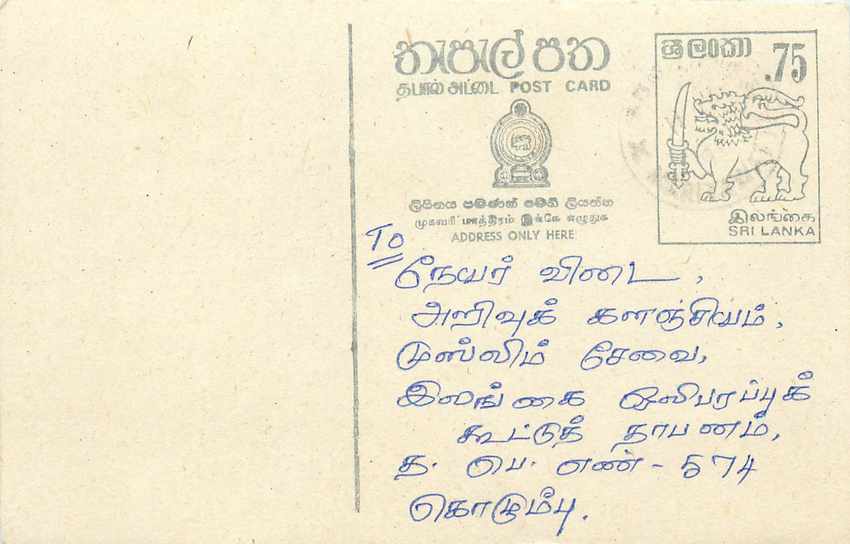 තැපැල් පත
தபால் அட்டை POST CARD
ලිපිනය පමණක් මෙහි ලියන්න
முகவரி மாத்திரம் இங்கே எழுதுக
ADDRESS ONLY HERE
ශ්‍රී ලංකා
.75
இலங்கை
SRI LANKA
To
நேயர் விடை,
அறிவுக் களஞ்சியம்,
முஸ்லிம் சேவை,
இலங்கை ஒலிபரப்புக்
கூட்டுத் தாபனம்,
த. பெ. எண் - 574
கொழும்பு.